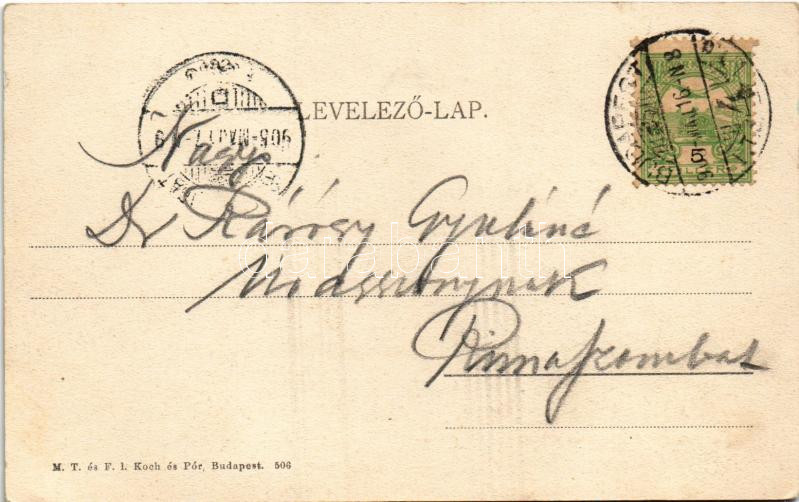 LEVELEZŐ-LAP.
905 MÁJ 17
BUDAPEST
5
Nagys
Dr Rárósy Gyuláné
Úrasszonynak
Rimaszombat
M. T. és F. l. Koch és Pór, Budapest. 506
darabanth